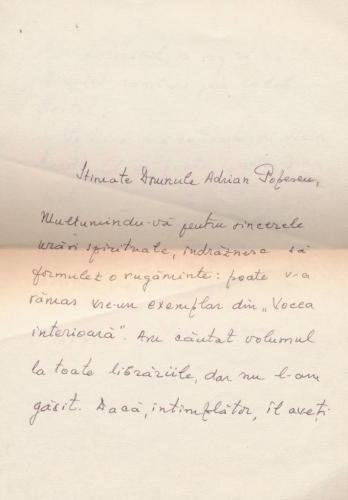 Stimate Domnule Adrian Popescu,
Mulțumindu-vă pentru sincerele
urări spirituale, îndrăznesc să
formulez o rugăminte: poate v-a
rămas vre-un exemplar din „Vocea
interioară". Am căutat volumul
la toate librăriile, dar nu l-am
găsit. Dacă, întîmplător, îl aveți